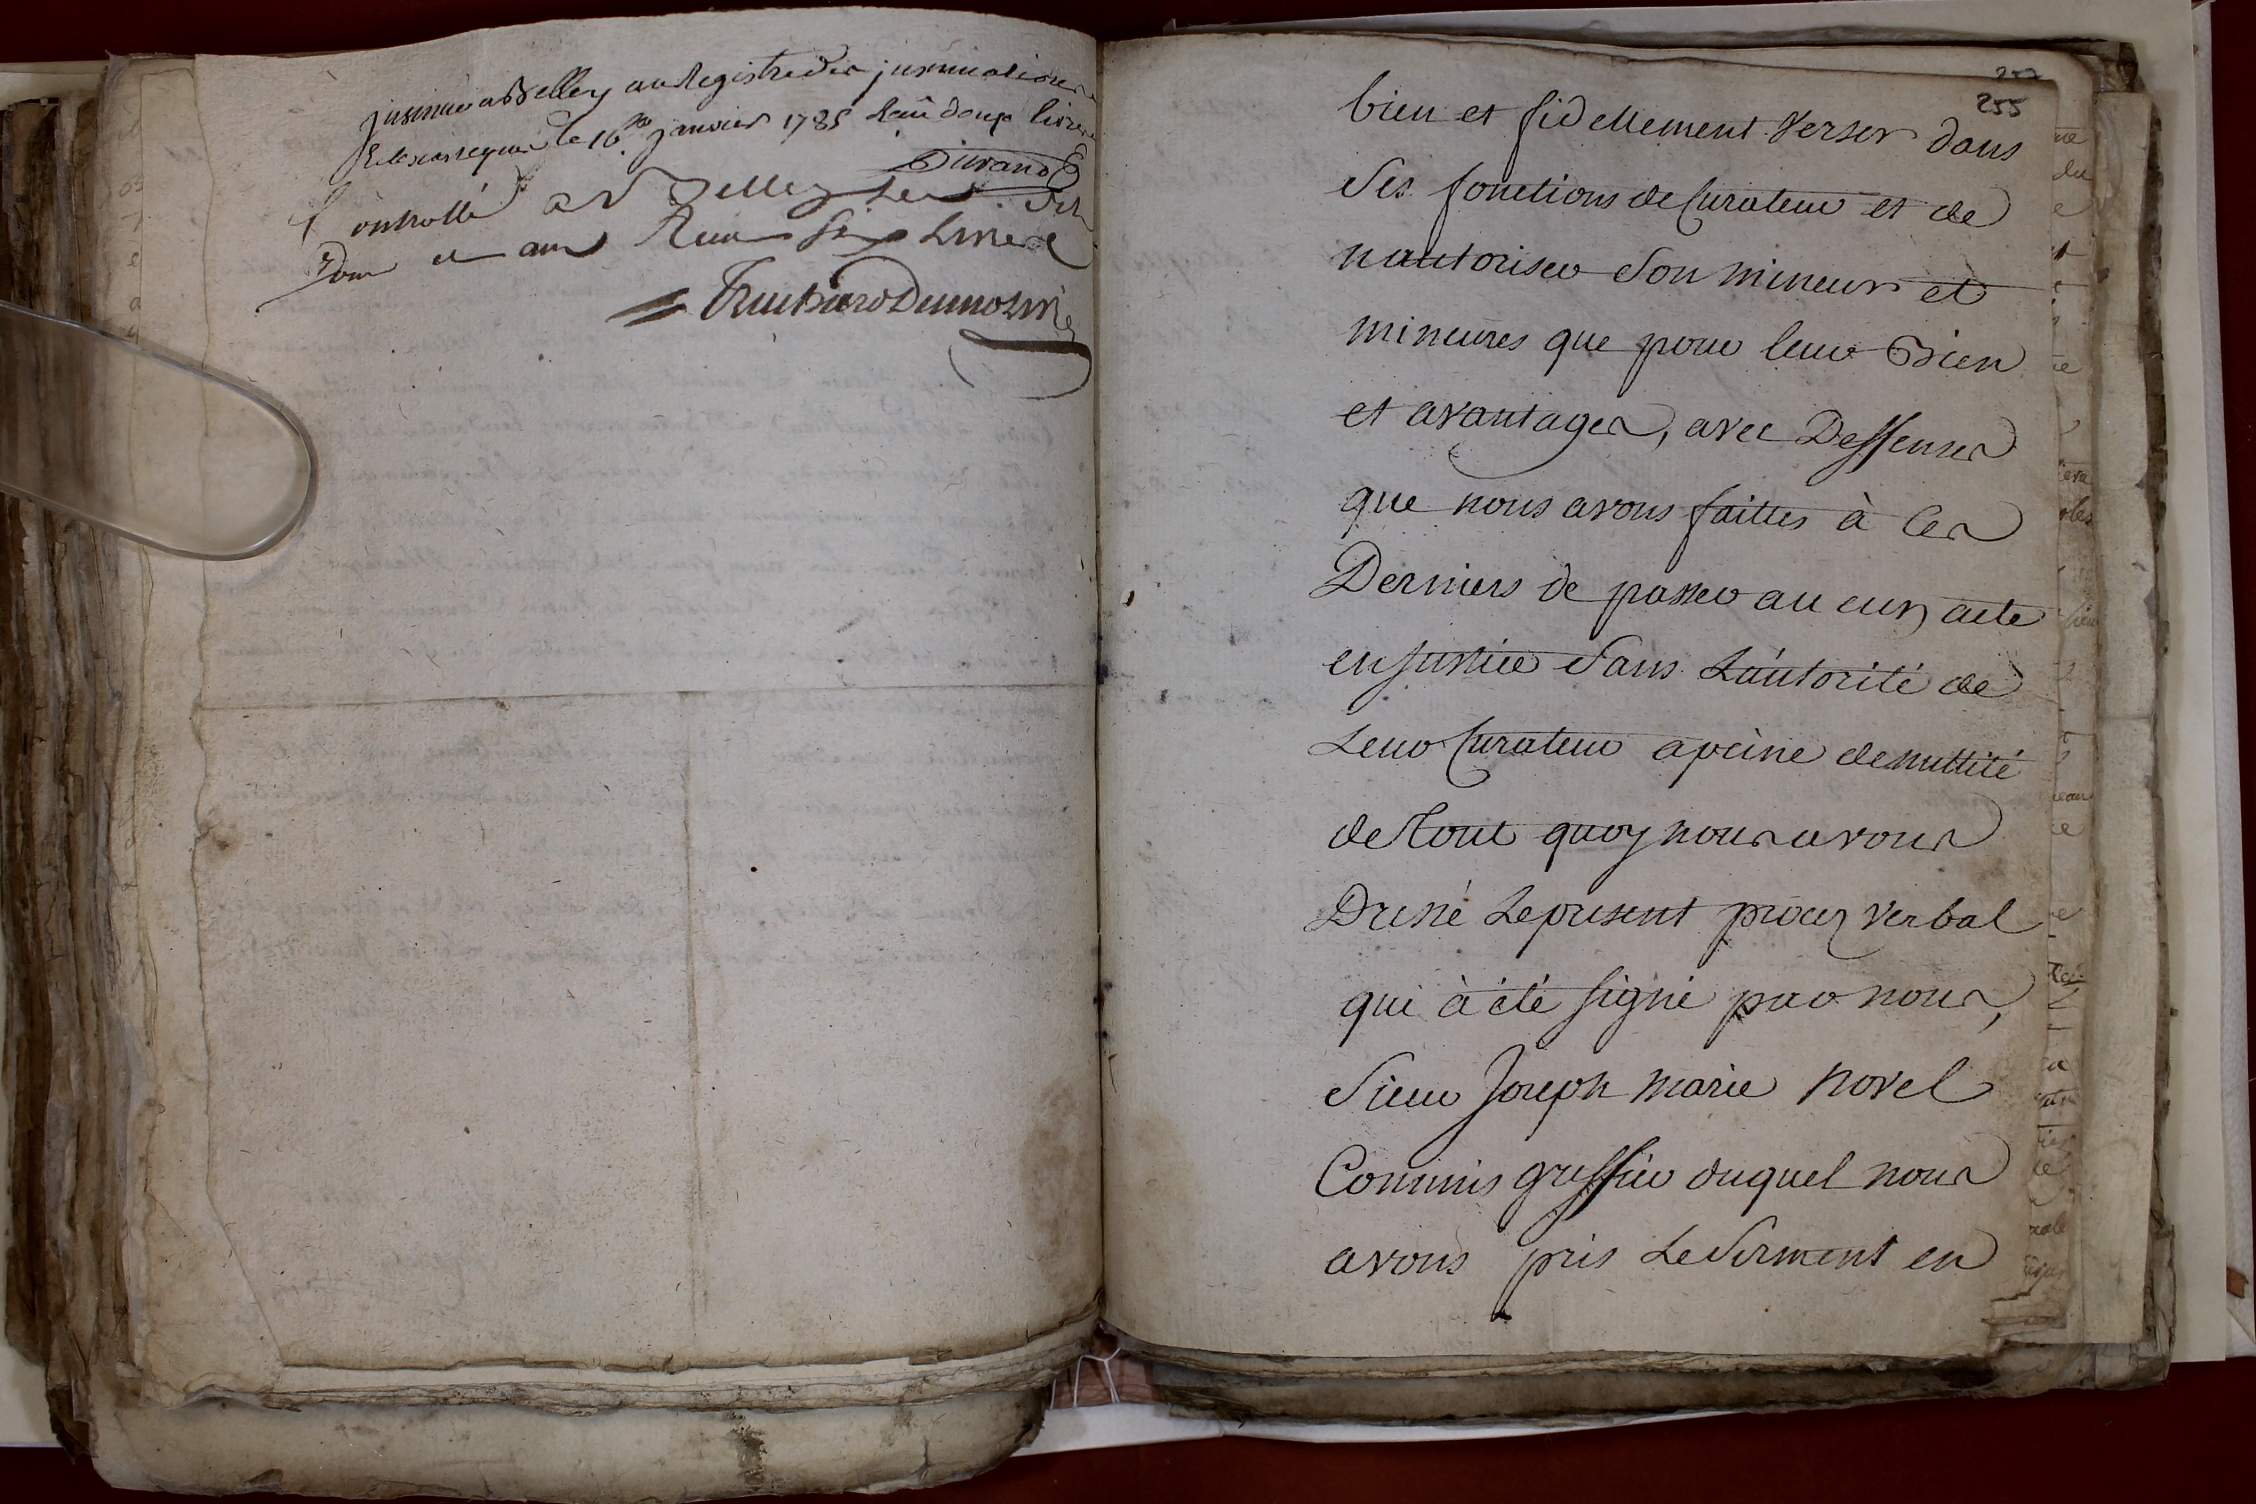 insinué a Belley au Registre des insinuations
Ecclesiastiques le 16 janvier 1785 Recu douze livres
Durand
Controllé a Belley led.
Jour et an Recu six Livres
257
255
bien et fidellement verser dans
ses fonctions de Curateur et de
nautoriser son mineur et
mineures que pour leur Bien
et avantages, avec Deffenses
que nous avons faittes à Ces
Derniers de passer aucun acte
en justice sans Lautorité de
Leur Curateur apeine denullité
de Tout quoy nous avons
Dressé Le present procez verbal
qui à été signé par nous,
Sieur Joseph marie Novel
Commis greffier duquel nous
avons pris Le serment en